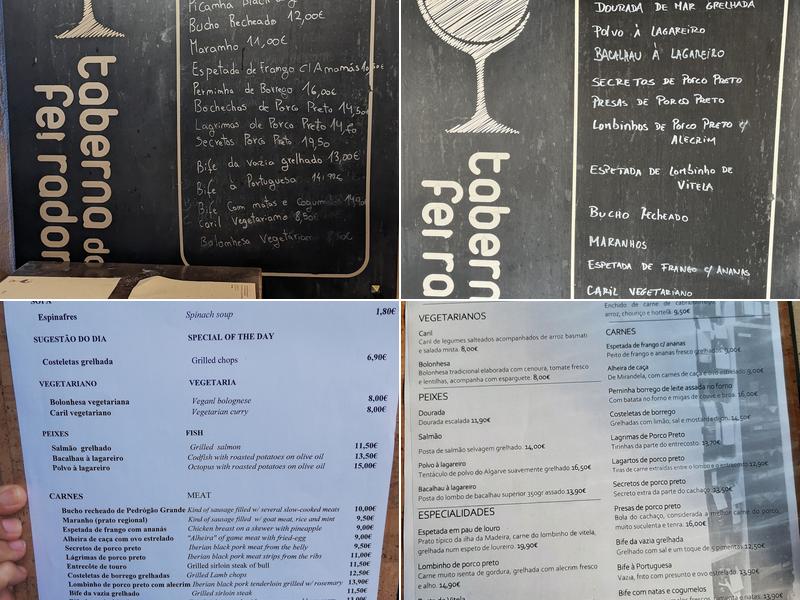 Picanha Black
Bucho Recheado 12,00€
Maranho 11,00€
Espetada de Frango C/ Ananás
Perninha de Borrego 16,00€
Bochechas de Porco Preto 14,50
Lagrimas de Porco Preto
Secretos Porco Preto 19,50
Bife da vazia grelhado 13,00€
Bife à Portuguesa
Bife Com natas e
Caril Vegetariano 8,50
Bolonhesa Vegetariana
taberna do
feirador
DOURADA DE MAR GRELHADA
POLVO À LAGAREIRO
BACALHAU À LAGAREIRO
SECRETOS DE PORCO PRETO
PRESAS DE PORCO PRETO
LOMBINHOS DE PORCO PRETO C/
ALECRIM
ESPETADA DE LOMBINHO DE
VITELA
BUCHO RECHEADO
MARANHOS
ESPETADA DE FRANGO C/ ANANAS
CARIL VEGETARIANO
tabern
feira
SOPA
Espinafres Spinach soup 1,80€
SUGESTÃO DO DIA SPECIAL OF THE DAY
Costeletas grelhada Grilled chops 6,90€
VEGETARIANO VEGETARIA
Bolonhesa vegetariana Veganl bolognese 8,00€
Caril vegetariano Vegetarian curry 8,00€
PEIXES FISH
Salmão grelhado Grilled salmon 11,50€
Bacalhau à lagareiro Codfish with roasted potatoes on olive oil 13,50€
Polvo à lagareiro Octopus with roasted potatoes on olive oil 15,00€
CARNES MEAT
Bucho recheado de Pedrógão Grande Kind of sausage filled w/ several slow-cooked meats 10,00€
Maranho (prato regional) Kind of sausage filled w/ goat meat, rice and mint 9,50€
Espetada de frango com ananás Chicken breast on a skewer with pineapple 9,00€
Alheira de caça com ovo estrelado "Alheira" of game meat with fried-egg 9,00€
Secretos de porco preto Iberian black pork meat from the belly 9,50€
Lágrimas de porco preto Iberian black pork meat strips from the ribs 11,00€
Entrecôte de touro Grilled sirloin steak of bull 11,50€
Costeletas de borrego grelhadas Grilled Lamb chops 12,50€
Lombinho de porco preto com alecrim Iberian black pork tenderloin grilled w/ rosemary 13,90€
Bife da vazia grelhado Grilled sirloin steak 11,50€
VEGETARIANOS
Caril
Caril de legumes salteados acompanhados de arroz basmati
e salada mista. 8,00€
Bolonhesa
Bolonhesa tradicional elaborada com cenoura, tomate fresco
e lentilhas, acompanha com esparguete. 8,00€
PEIXES
Dourada
Dourada escalada 11,90€
Salmão
Posta de salmão selvagem grelhado. 14,00€
Polvo à lagareiro
Tentáculo de polvo do Algarve suavemente grelhado 16,50€
Bacalhau à lagareiro
Posta do lombo de bacalhau superior 350gr assado 13,90€
ESPECIALIDADES
Espetada em pau de louro
Prato típico da ilha da Madeira, carne do lombinho de vitela,
grelhada num espeto de loureiro. 19,90€
Lombinho de porco preto
Carne muito isenta de gordura, grelhada com alecrim fresco
e alho. 14,90€
Enchido de carne de
arroz, chouriço e hortelã. 9,50€
CARNES
Espetada de frango c/ ananas
Peito de frango e ananas fresco grelhados. 9,00€
Alheira de caça
De Mirandela, com carnes de caça e ovo estrelado 9,00€
Perninha borrego de leite assada no forno
Com batata no forno e migas de couve e broa. 16,00€
Costeletas de borrego
Grelhadas com limão, sal e mostarda dijon. 14,50€
Lagrimas de Porco Preto
Tirinhas da parte do entrecosto. 13,70€
Lagartos de porco Preto
Tiras de carne extraídas entre o lombo e o entrecosto 12,90€
Secretos de porco Preto
Secreto extra da parte do cachaço. 13,50€
Presas de porco Preto
Bola do cachaço, considerada a melhor carne do porco,
muito suculenta e tenra. 16,00€
Bife da vazia grelhado
Grelhado com sal e um toque de 5 pimentas 12,50€
Bife à Portuguesa
Vazia, frito com presunto e ovo estrelado. 13,90€
Bife com natas e cogumelos